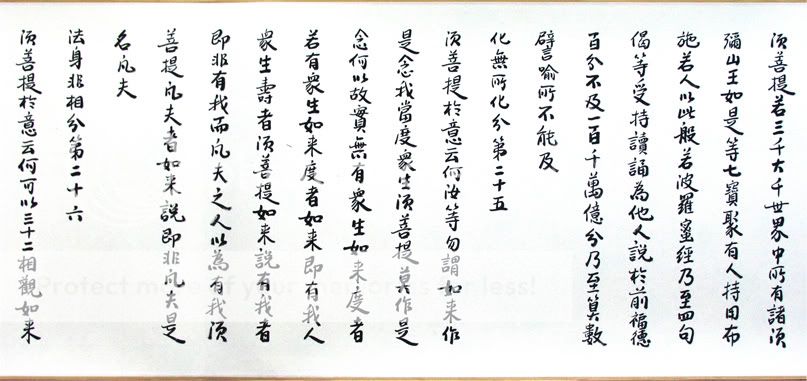 須菩提若三千大千世界中所有諸須
彌山王如是等七寶聚有人持用布
施若人以此般若波羅蜜經乃至四句
偈等受持讀誦為他人說於前福德
百分不及一百千萬億分乃至算數
譬喻所不能及
化無所化分第二十五
須菩提於意云何汝等勿謂如来作
是念我當度衆生須菩提莫作是
念何以故實無有衆生如来度者
若有衆生如来度者如来即有我人
衆生壽者須菩提如来說有我者
即非有我而凡夫之人以為有我須
菩提凡夫者如来說即非凡夫是
名凡夫
法身非相分第二十六
須菩提於意云何可以三十二相觀如来
Protect more of your memories for less!